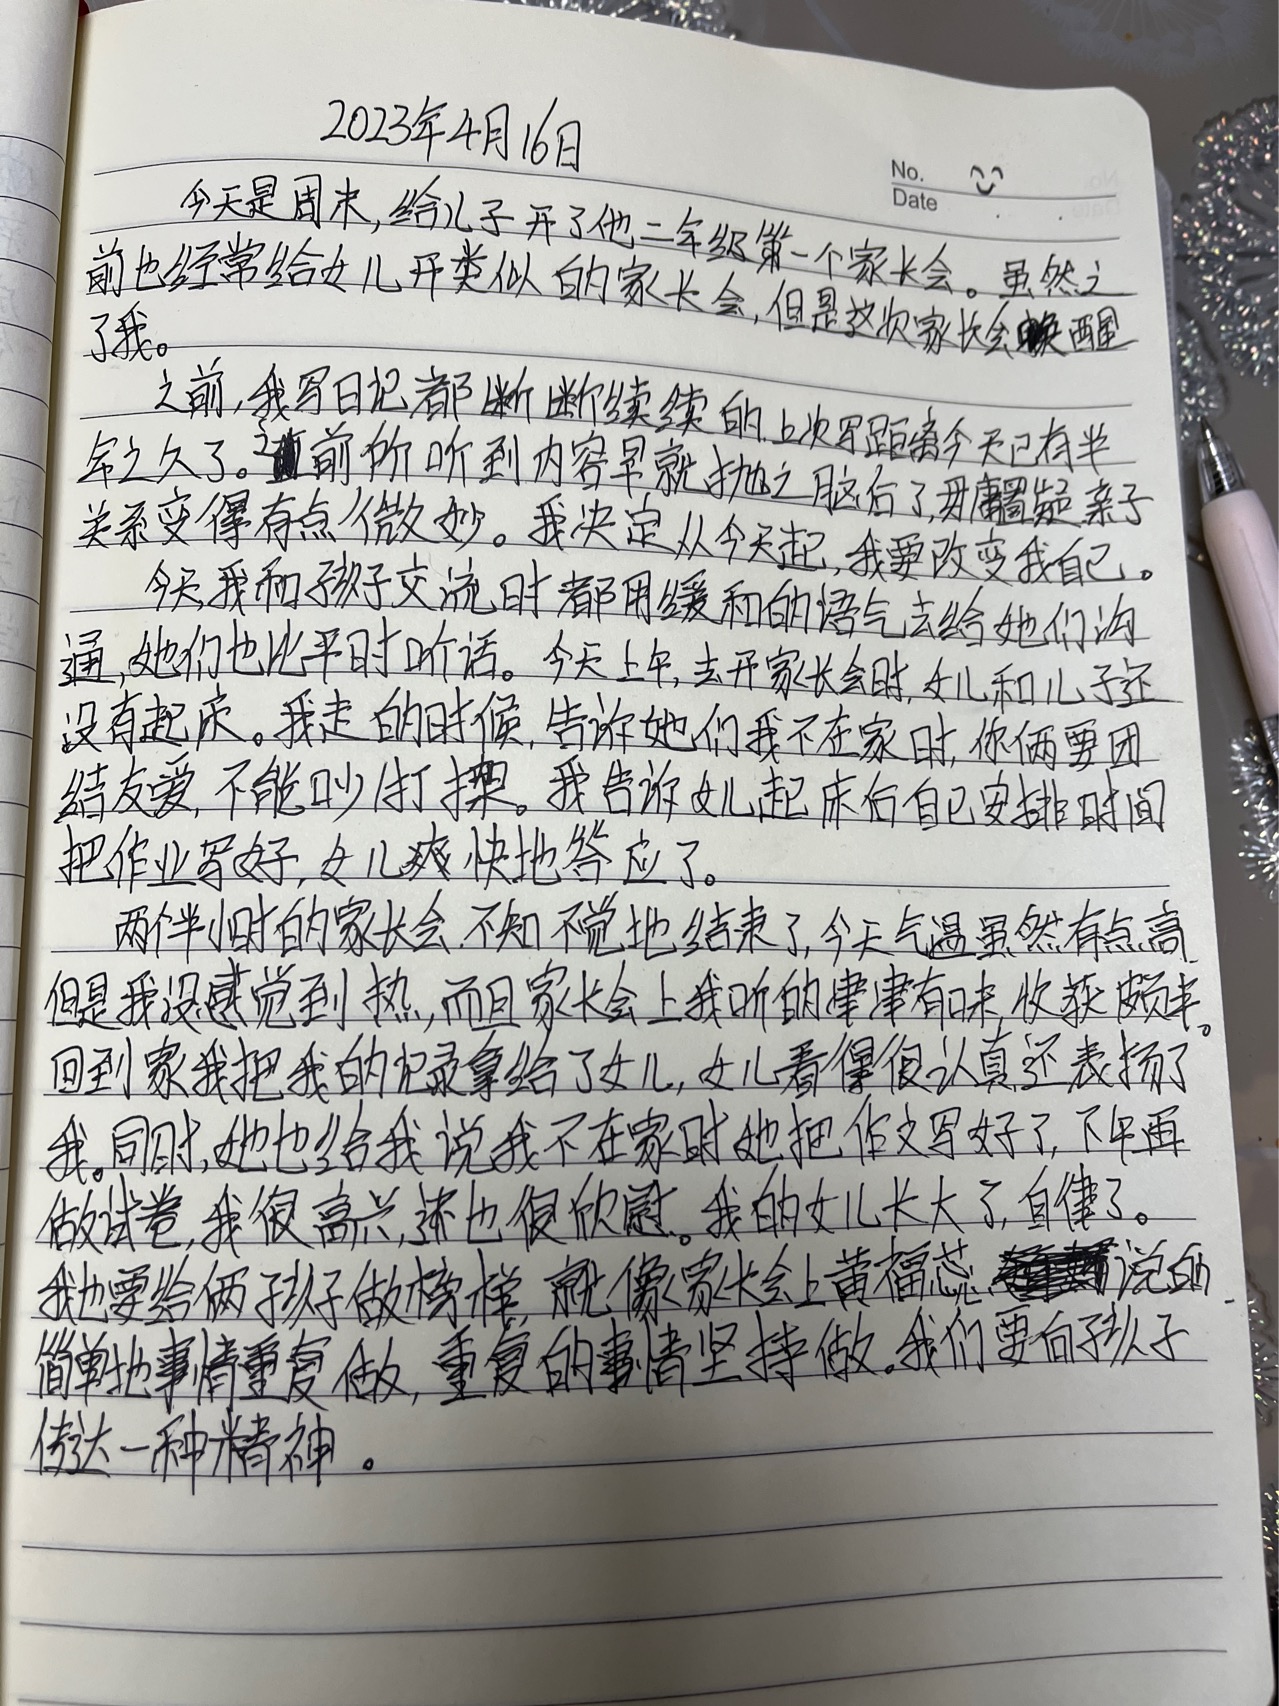 2023年4月16日
No.
Date
今天是周末,给儿子开了他二年级第一个家长会。虽然之
前也经常给女儿开类似的家长会,但是这次家长会唤醒
了我。
之前,我写日记都断断续续的.上次写距离今天已有半
年之久了。之前所听到内容早就抛之脑后了,毋庸置疑亲子
关系变得有点微妙。我决定从今天起,我要改变我自己。
今天,我和孩子交流时都用缓和的语气去给她们沟
通,她们也比平时听话。今天上午,去开家长会时,女儿和儿子还
没有起床。我走的时候,告诉她们我不在家时,你俩要团
结友爱,不能吵打架。我告诉女儿起床后自己安排时间
把作业写好,女儿爽快地答应了。
两个半小时的家长会.不知不觉地结束了,今天气温虽然有点高
但是我没感觉到热,而且家长会上我听的津津有味,收获颇丰。
回到家我把我的记录拿给了女儿,女儿看得很认真还表扬了
我。同时,她也给我说我不在家时她把作文写好了,下午再
做试卷,我很高兴,还也很欣慰。我的女儿长大了,自律了。
我也要给俩孩子做榜样,就像家长会上黄福蕊说的
简单地事情重复做,重复的事情坚持做。我们要向孩子
传达一种精神。